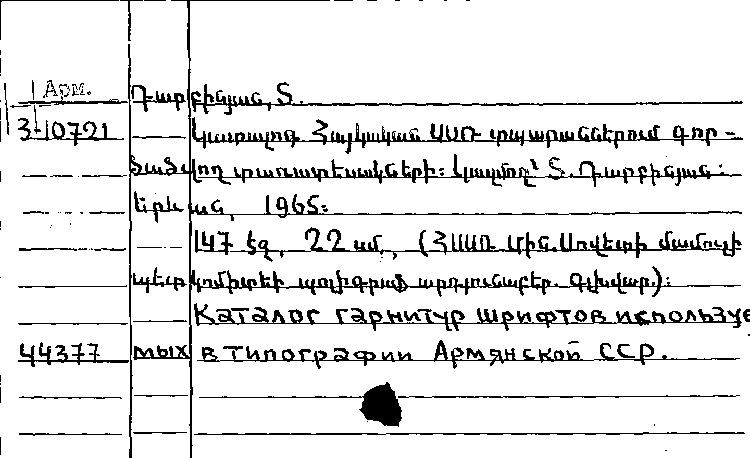 Арм.
Դարբինյան, Տ.
3-10721
Կատալոգ Հայկական ՍՍՌ տպարաններում գոր-
ծածվող տառատեսակների։ Կազմող՝ Տ. Դարբինյան։
Երևան, 1965։
147 էջ, 22 սմ, (ՀՍՍՌ Մին. Սովետի մամուլի
պետ կոմիտեի պոլիգրաֆ արդյունաբեր. գլխվար.)։
Каталог гарнитур шрифтов используе
44377 мых в типографии Армянской ССР.